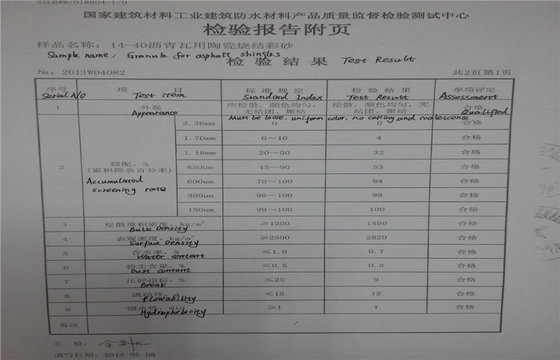 STCBWM/DIE004-1/0
国家建筑材料工业建筑防水材料产品质量监督检验测试中心
检验报告附页
样品名称：14-40沥青瓦用陶瓷烧结彩砂
Sample name: Granule for asphalt shingles
检验结果 Test Result
No: 2013W04082 共2页第1页
序号 项目 标准规定 检验结果 单项评定
Serial N/O Test item Standard Index Test Result Assessment
1 外观 应松散，颜色均匀，无结团，聚结 松散，颜色均匀，无结团，聚结 合格
Appearance Must be loose, uniform color, no caking and coalescence Qualified
2 级配，%（累积筛余百分率） 2.36mm 0 0 合格
Accumulated screening rate
1.70mm 0~10 4 合格
1.18mm 20~50 32 合格
850um 45~90 53 合格
600um 70~100 84 合格
300um 98~100 99 合格
150um 99~100 100 合格
3 松散堆积密度，kg/m³ ≥1200 1490 合格
Bulk Density
4 表观密度，kg/m³ ≥2500 2820 合格
Surface Density
5 含水率，% ≤1.0 0.7 合格
Water content
6 粉尘含量，% ≤0.5 0.3 合格
Dust content
7 压碎指标，% ≤25 9 合格
Break
8 流动性，s ≤15 12 合格
Flowability
9 憎水性，min ≥1 1 合格
Hydrophobicity
备注 /
主检：
填写日期：2013-05-08